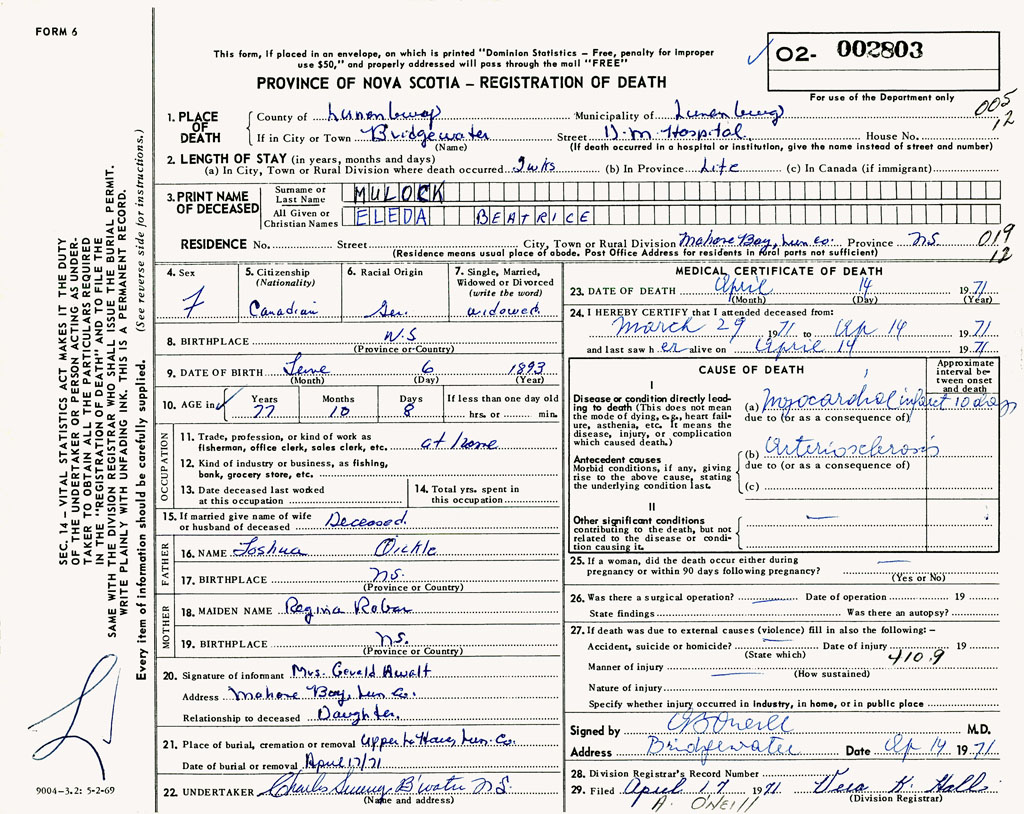 FORM 6
This form, If placed in an envelope, on which is printed "Dominion Statistics – Free, penalty for improper
use $50," and properly addressed will pass through the mail "FREE"
02- 002803
PROVINCE OF NOVA SCOTIA – REGISTRATION OF DEATH
For use of the Department only
005
12
1. PLACE OF DEATH
County of Lunenburg Municipality of Lunenburg
If in City or Town Bridgewater Street D.M. Hospital House No.
(Name) (If death occurred in a hospital or institution, give the name instead of street and number)
2. LENGTH OF STAY (in years, months and days)
(a) In City, Town or Rural Division where death occurred 2 wks (b) In Province Life (c) In Canada (if immigrant)
3. PRINT NAME OF DECEASED
Surname or Last Name MULOCK
All Given or Christian Names ELEDA BEATRICE
RESIDENCE No. Street City, Town or Rural Division Mahone Bay, Lun. Co. Province N.S. 019
(Residence means usual place of abode. Post Office Address for residents in rural parts not sufficient) 12
4. Sex
F
5. Citizenship
(Nationality)
Canadian
6. Racial Origin
Ger.
7. Single, Married,
Widowed or Divorced
(write the word)
widowed
8. BIRTHPLACE N.S
(Province or Country)
9. DATE OF BIRTH June 6 1893
(Month) (Day) (Year)
10. AGE in
Years Months Days If less than one day old
77 10 8 hrs. or min.
OCCUPATION
11. Trade, profession, or kind of work as
fisherman, office clerk, sales clerk, etc. at home
12. Kind of industry or business, as fishing,
bank, grocery store, etc.
13. Date deceased last worked
at this occupation
14. Total yrs. spent in
this occupation
15. If married give name of wife
or husband of deceased Deceased
FATHER
16. NAME Joshua Oickle
17. BIRTHPLACE N.S.
(Province or Country)
MOTHER
18. MAIDEN NAME Regina
19. BIRTHPLACE N.S.
(Province or Country)
20. Signature of informant Mrs. Gerald Awalt
Address Mahone Bay, Lun Co.
Relationship to deceased Daughter.
21. Place of burial, cremation or removal Lun. Co.
Date of burial or removal April 17/71
22. UNDERTAKER Charles B'water N.S.
(Name and address)
MEDICAL CERTIFICATE OF DEATH
23. DATE OF DEATH April 14 1971
(Month) (Day) (Year)
24. I HEREBY CERTIFY that I attended deceased from:
March 29 1971 to Ap 14 1971
and last saw her alive on April 14 1971
CAUSE OF DEATH
Approximate
interval be-
tween onset
and death
I
Disease or condition directly lead-
ing to death (This does not mean
the mode of dying, e.g., heart fail-
ure, asthenia, etc. It means the
disease, injury, or complication
which caused death.)
(a) Myocardial infarct 10 days
due to (or as a consequence of)
Antecedent causes
Morbid conditions, if any, giving
rise to the above cause, stating
the underlying condition last.
(b) Arteriosclerosis
due to (or as a consequence of)
(c)
II
Other significant conditions
contributing to the death, but not
related to the disease or condi-
tion causing it.
25. If a woman, did the death occur either during
pregnancy or within 90 days following pregnancy?
(Yes or No)
26. Was there a surgical operation? Date of operation 19
State findings Was there an autopsy?
27. If death was due to external causes (violence) fill in also the following: –
Accident, suicide or homicide? Date of injury 19
(State which) 410.9
Manner of injury
(How sustained)
Nature of injury
Specify whether injury occurred in Industry, in home, or in public place
Signed by O'Neill M.D.
Address Bridgewater Date Ap 14 1971
28. Division Registrar's Record Number
29. Filed April 17 1971 Vera K. Hall
A. O'NEILL (Division Registrar)
SEC. 14 – VITAL STATISTICS ACT MAKES IT THE DUTY
OF THE UNDERTAKER OR PERSON ACTING AS UNDER-
TAKER TO OBTAIN ALL THE PARTICULARS REQUIRED
IN THE "REGISTRATION OF DEATH" AND TO FILE THE
SAME WITH THE DIVISION REGISTRAR WHO SHALL ISSUE THE BURIAL PERMIT.
WRITE PLAINLY WITH UNFADING INK. THIS IS A PERMANENT RECORD.
Every item of information should be carefully supplied. (See reverse side for instructions.)
9004–3.2: 5-2-69